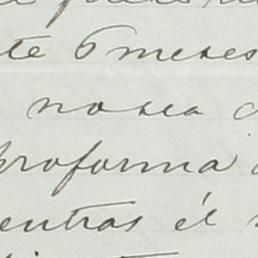 te 6 meses
no sea
proforma
entras él